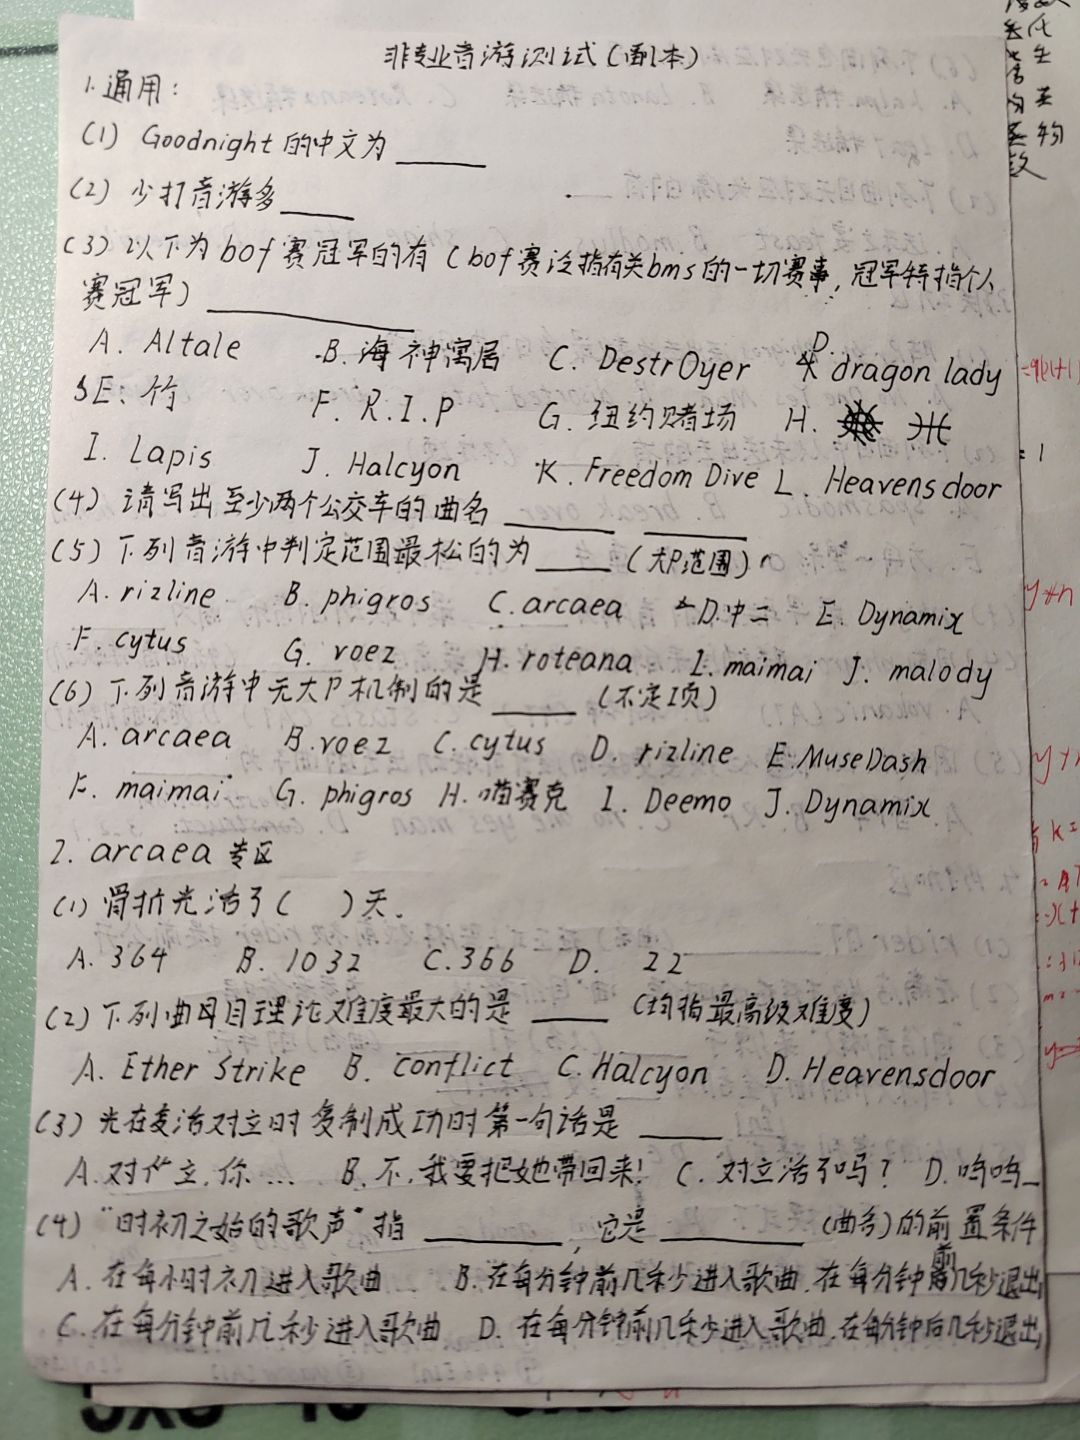 非专业音游测试(副本)
1.通用:
(1) Goodnight 的中文为____
(2) 少打音游多____
(3) 以下为 bof 赛冠军的有 (bof赛泛指有关bms的一切赛事, 冠军特指个人
赛冠军) ____
A. Altale B. 海神寓居 C. Destr0yer D. dragon lady
E. 竹 F. R.I.P G. 纽约赌场 H. 卅
I. Lapis J. Halcyon K. Freedom Dive L. Heavensdoor
(4) 请写出至少两个公交车的曲名 ____ ____
(5) 下列音游中判定范围最松的为____ (大P范围)
A. rizline B. phigros C. arcaea D.中二 E. Dynamix
F. cytus G. voez H. roteana I. maimai J. malody
(6) 下列音游中无大P机制的是 ____ (不定项)
A. arcaea B. voez C. cytus D. rizline E. MuseDash
F. maimai G. phigros H. 喵赛克 I. Deemo J. Dynamix
2. arcaea 专区
(1) 骨折光活了( )天.
A. 364 B. 1032 C. 366 D. 22
(2) 下列曲目理论难度最大的是 ____ (均指最高级难度)
A. Ether Strike B. conflict C. Halcyon D. Heavensdoor
(3) 光在复活对立时复制成功时第一句话是 ____
A. 对你立,你... B. 不,我要把她带回来! C. 对立活了吗? D. 呜呜_
(4) "时初之始的歌声"指 ____, 它是 ____ (曲名)的前置条件
A. 在每小时初进入歌曲 B. 在每分钟前几秒进入歌曲,在每分钟前几秒退出
C. 在每分钟前几秒进入歌曲 D. 在每分钟前几秒进入歌曲,在每分钟后几秒退出